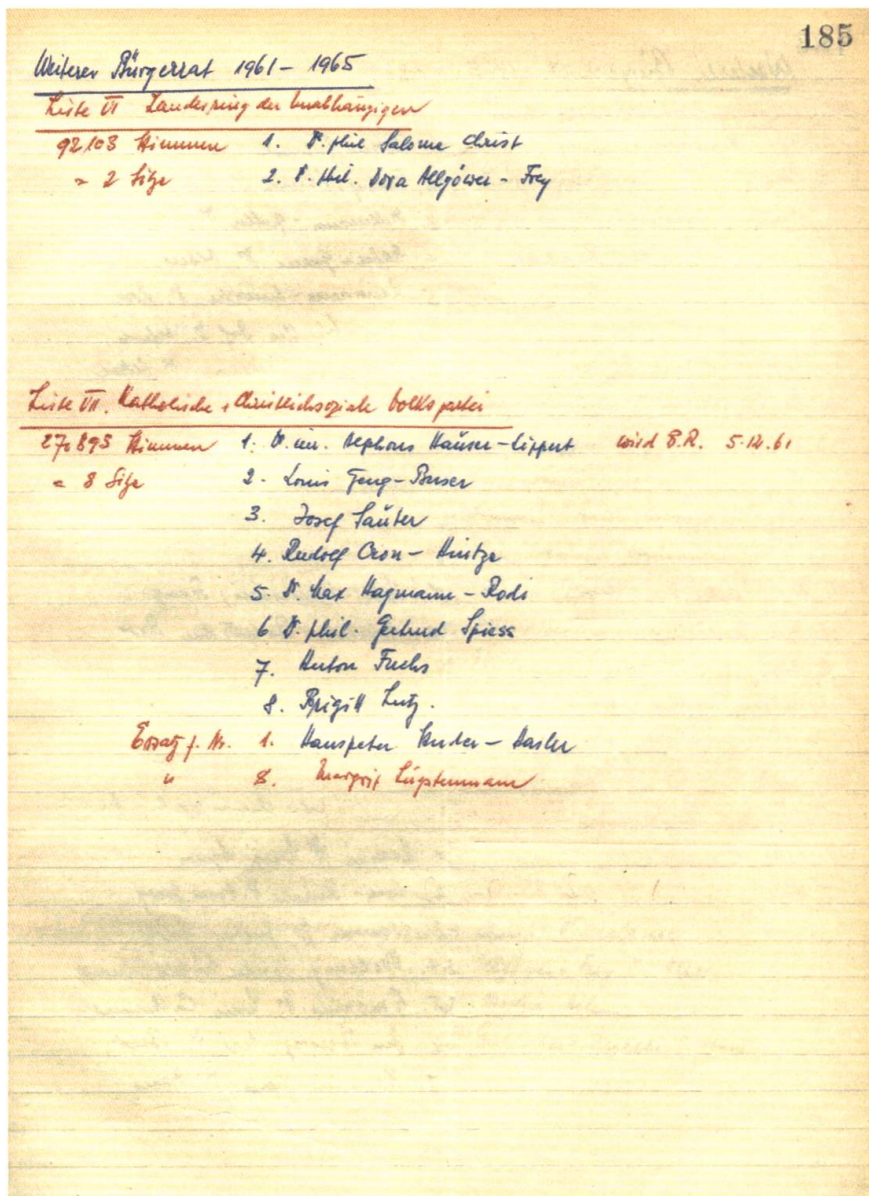 185
Weiterer Bürgerrat 1961 – 1965
Liste VI Landesring der Unabhängigen
92103 Stimmen 1. Dr. phil. Salome Christ
= 2 Sitze 2. Dr. phil. Dora Allgöwer - Frey
Liste VII. Katholische & Christlichsoziale Volkspartei
270895 Stimmen 1. Dr. iur. Alphons Hauser-Lippert wird B.R. 5.12.61
= 8 Sitze 2. Louis Geng-Buser
3. Josef Sauter
4. Rudolf Cron - Hintze
5. Dr. Max Hagmann - Rodi
6 Dr. phil. Gertrud Spiess
7. Anton Fuchs
8. Brigitt Lutz.
Ersatz f. Nr. 1. Hanspeter Studer - Hasler
" 8. Margrit